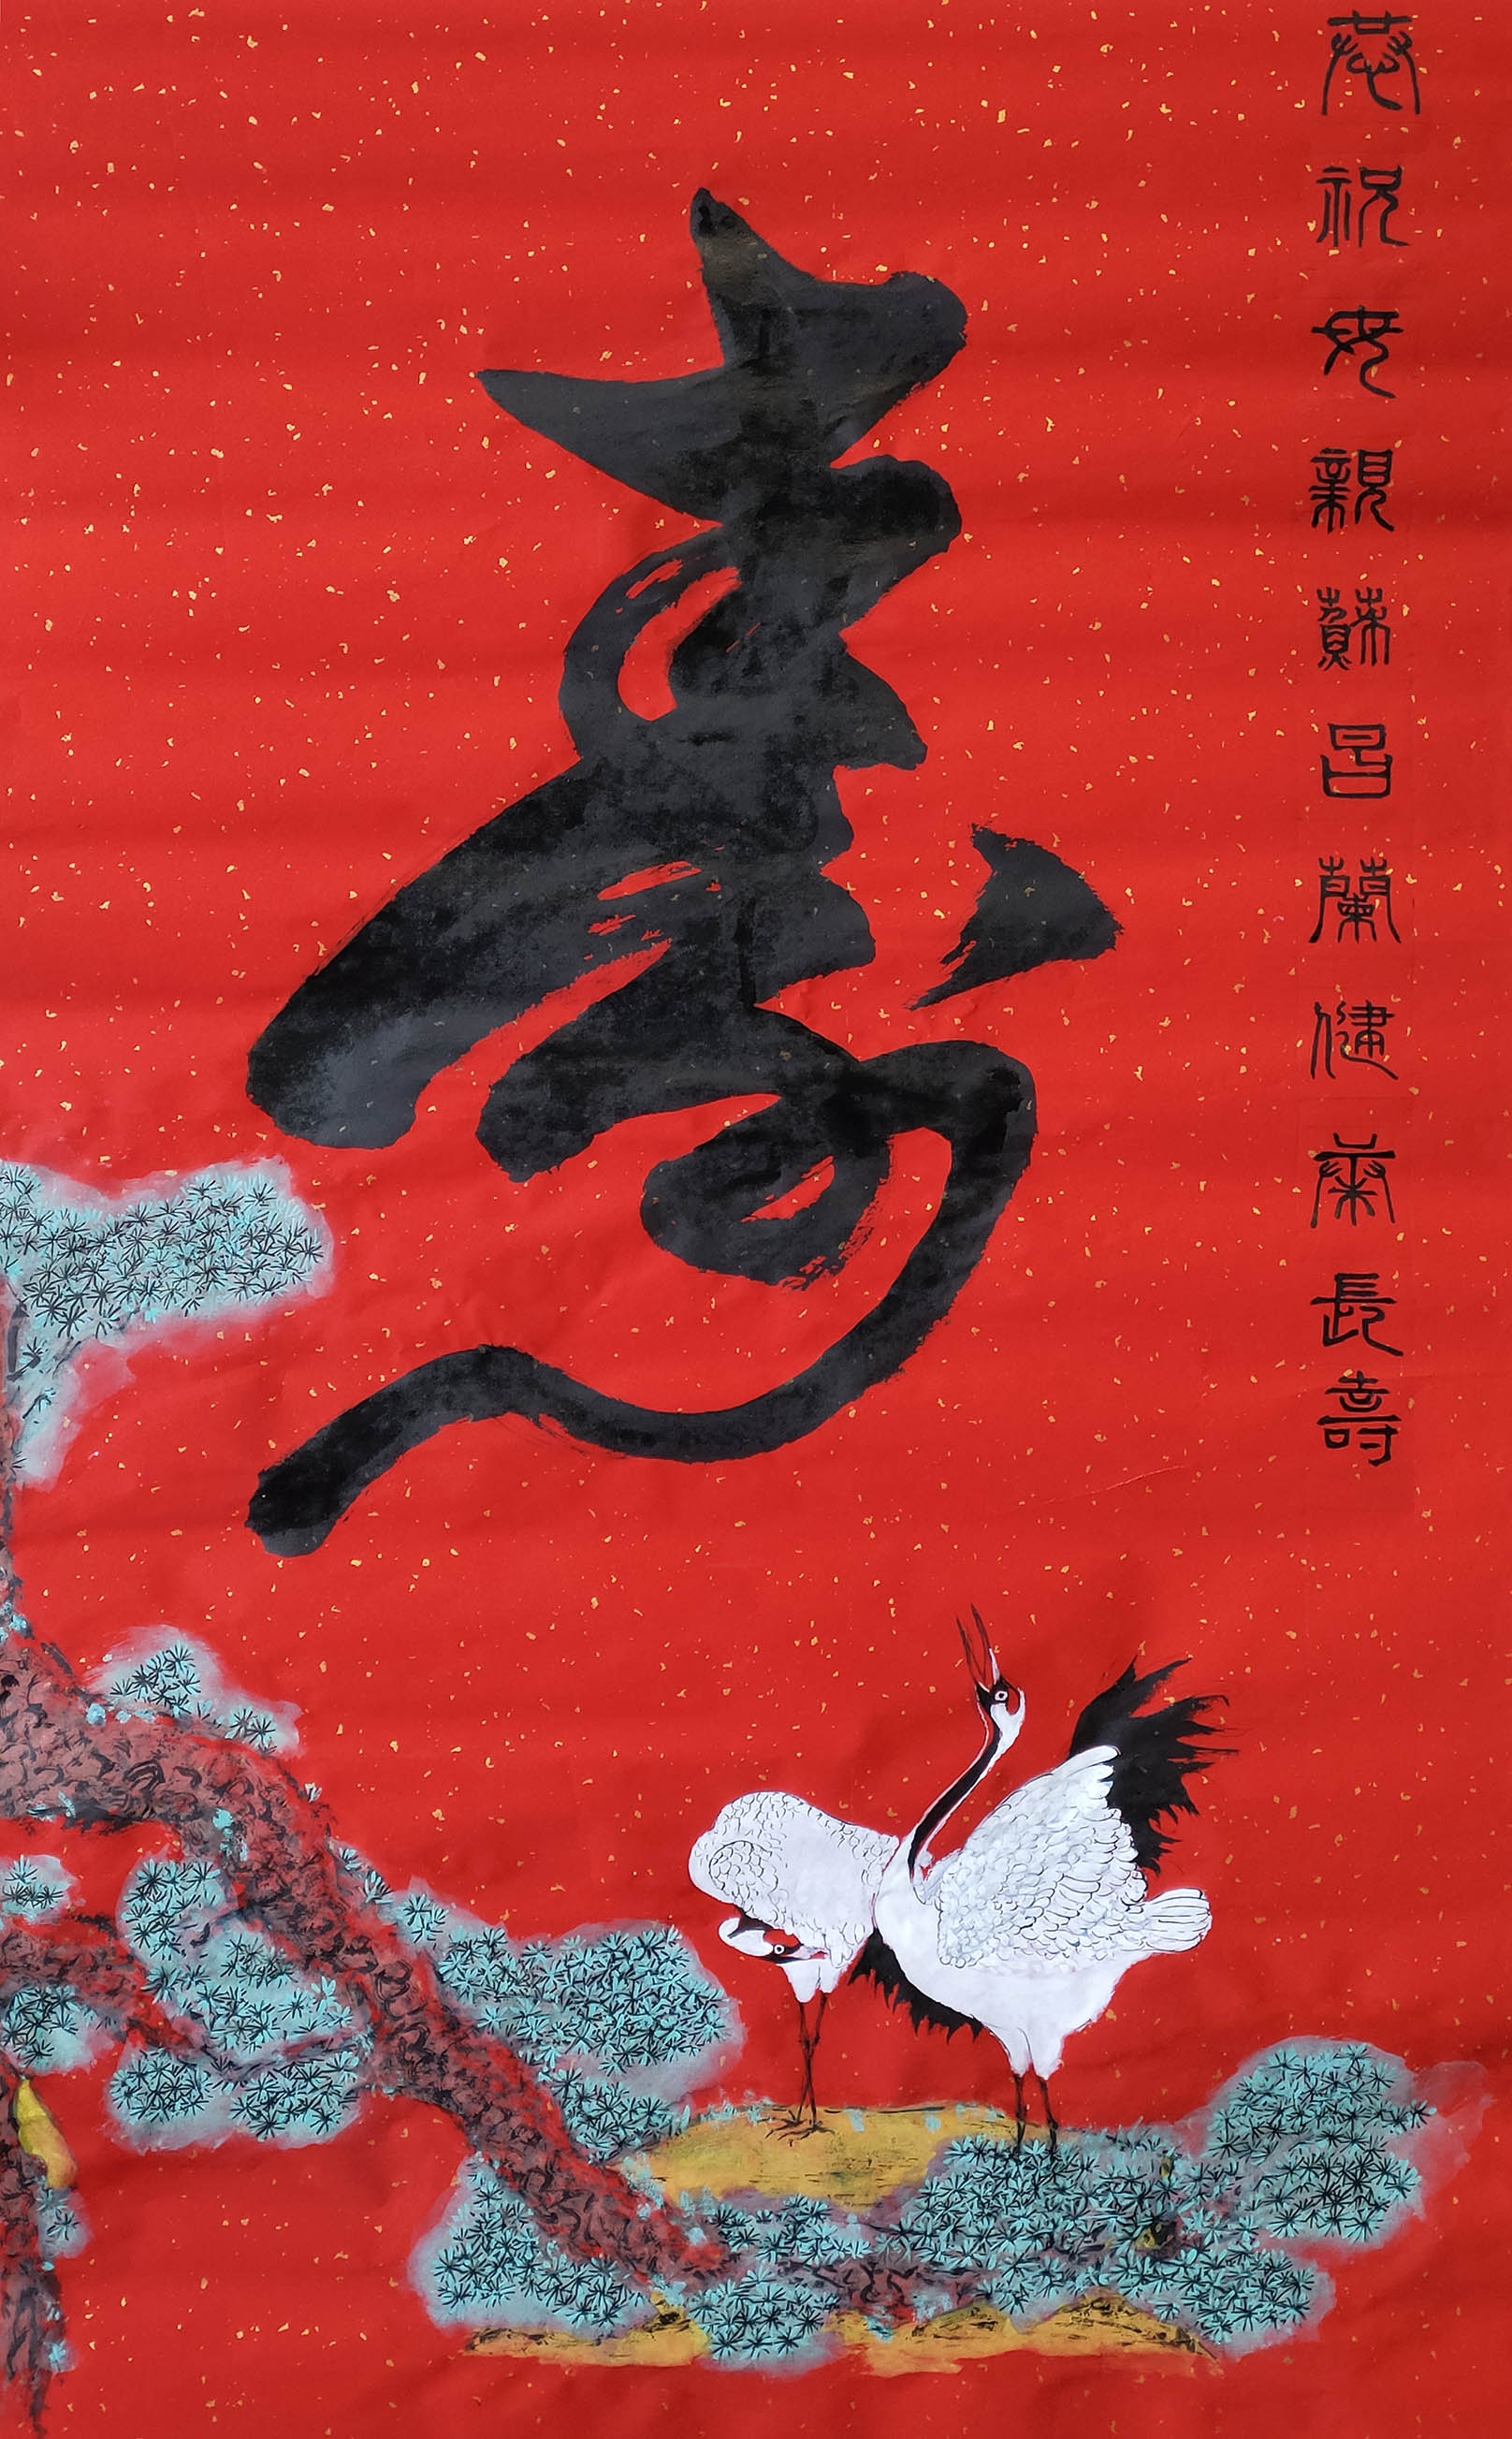 恭祝母親蘇呂蘭健康長壽
壽